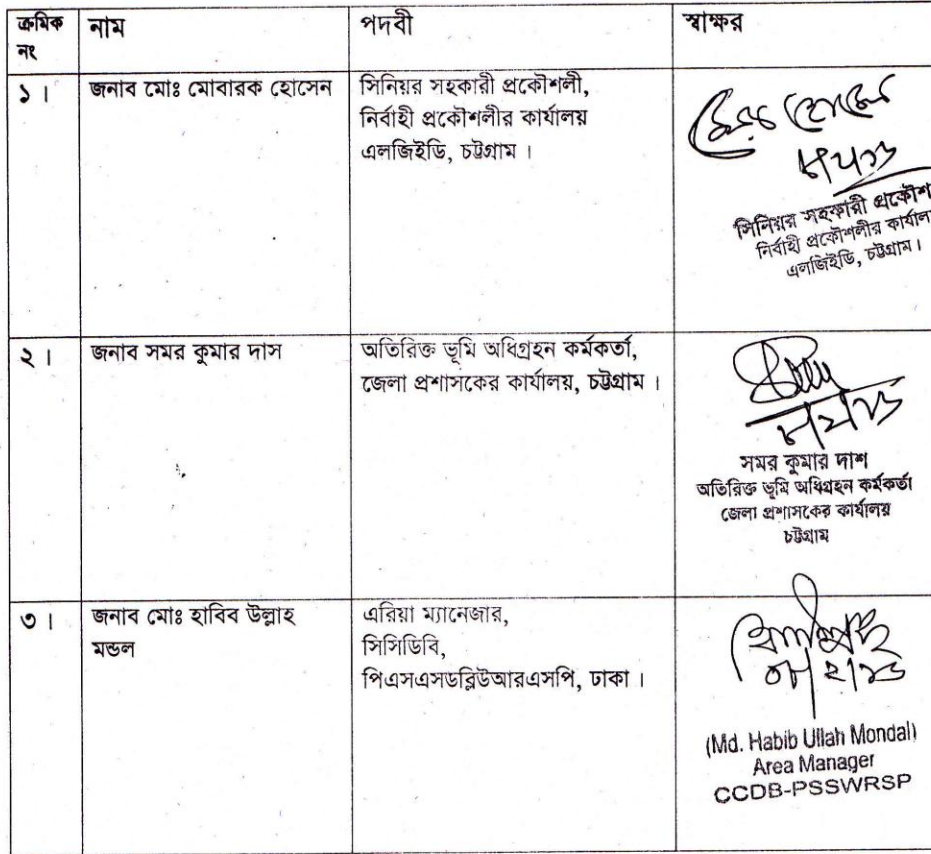 ক্রমিক নং	নাম	পদবী	স্বাক্ষর
১ ।	জনাব মোঃ মোবারক হোসেন	সিনিয়র সহকারী প্রকৌশলী,
নির্বাহী প্রকৌশলীর কার্যালয়
এলজিইডি, চট্টগ্রাম ।
সিনিয়র সহকারী
নির্বাহী প্রকৌশলীর
এলজিইডি, চট্টগ্রাম।
২ ।	জনাব সমর কুমার দাস	অতিরিক্ত ভূমি অধিগ্রহন কর্মকর্তা,
জেলা প্রশাসকের কার্যালয়, চট্টগ্রাম ।
সমর কুমার দাশ
অতিরিক্ত ভূমি অধিগ্রহন কর্মকর্তা
জেলা প্রশাসকের কার্যালয়
চট্টগ্রাম
৩ ।	জনাব মোঃ হাবিব উল্লাহ	এরিয়া ম্যানেজার,
মন্ডল	সিসিডিবি,
পিএসএসডব্লিউআরএসপি, ঢাকা ।
(Md. Habib Ullah Mondal)
Area Manager
CCDB-PSSWRSP